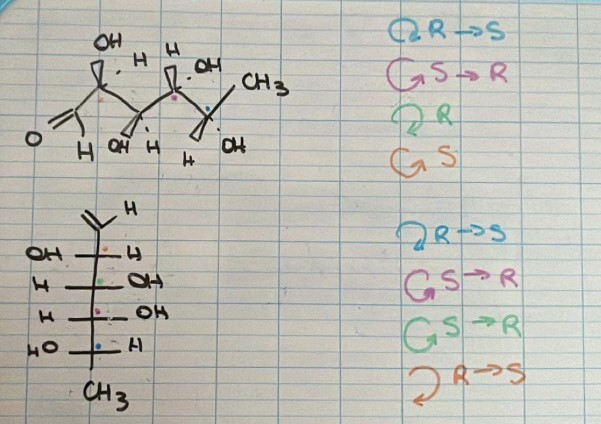 OH
H H OH CH3
O H OH H H OH
R → S
S → R
R
S
H
OH H
H OH
H OH
HO H
CH3
R → S
S → R
S → R
R → S